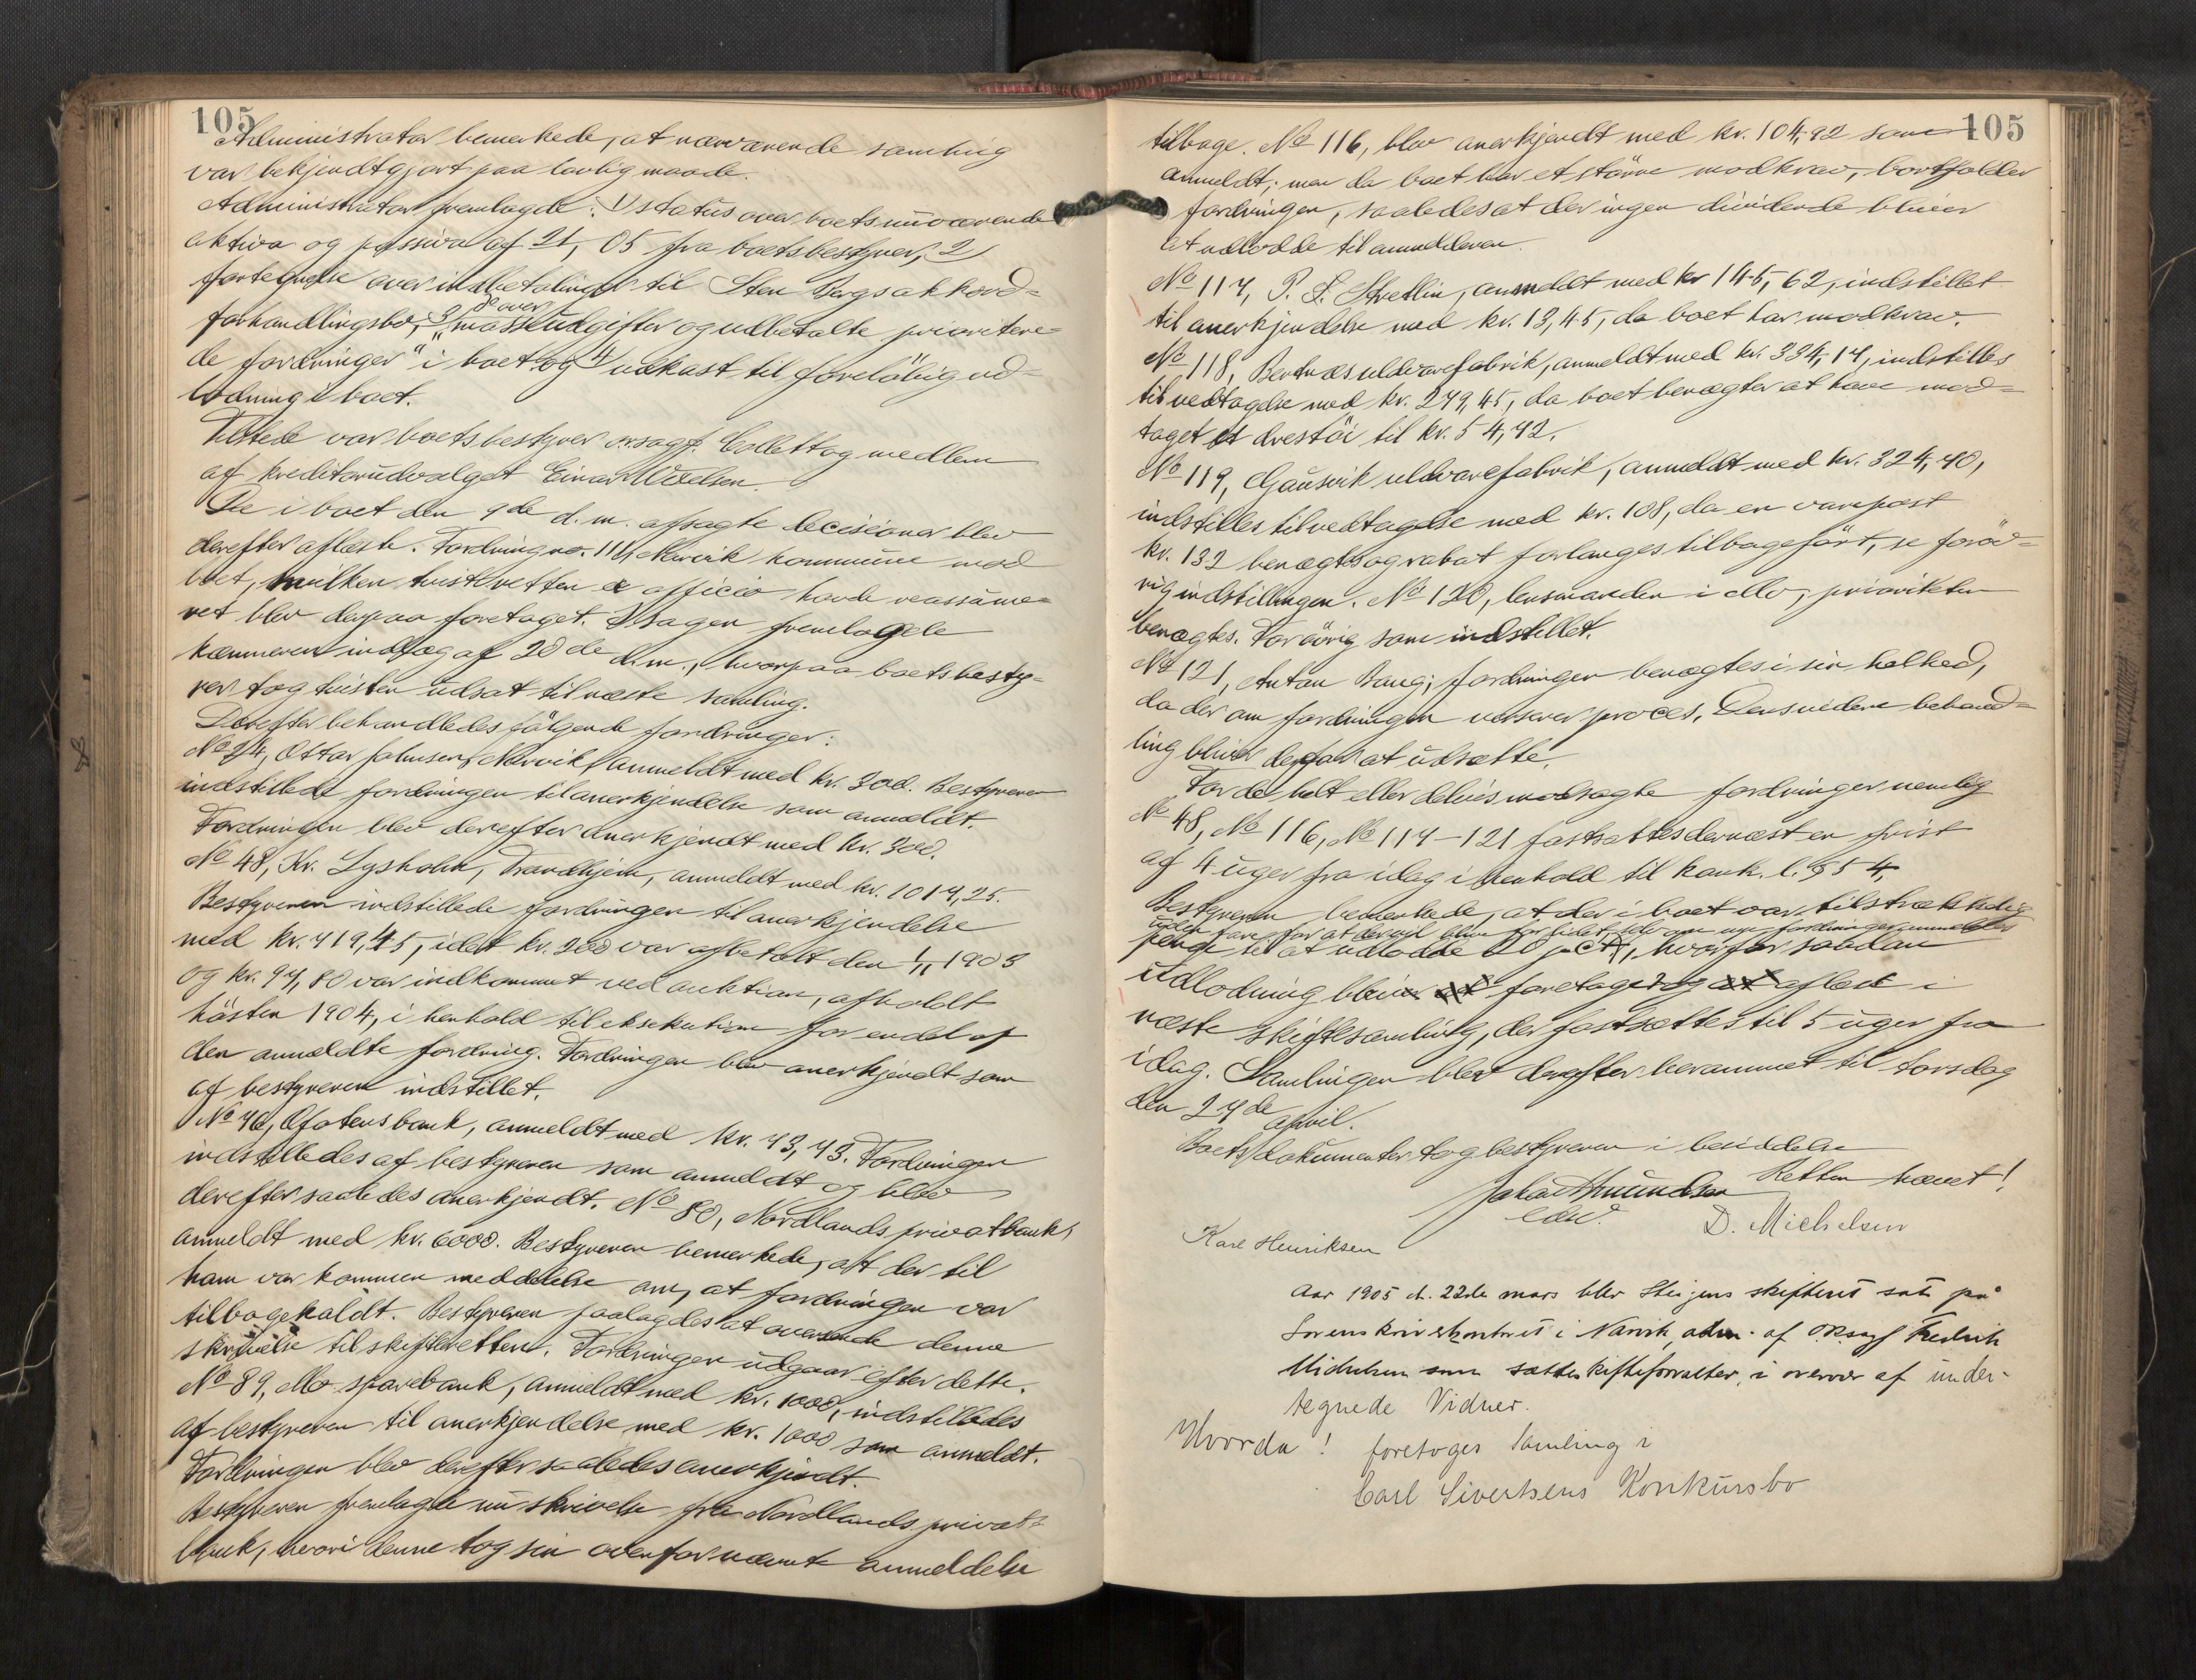 105
Administrator bemerkede, at nærværende samling
var bekjendtgjort paa lovlig maade.
Administrator fremlagde: 1) status over boets nuværende
aktiva og passiva af 21, 05 fra boetsbestyrer, 2)
fortegnelse over indbetalinger til Sten Bergs akkord-
forhandlingsbo, 3) do over „masseudgifter og udbetalte prioritere-
de fordringer" i boet og 4) udkast til foreløbig ud-
lodning i boet.
Tilstede var boets bestyrer orsagf. Collett og medlem
af kreditorudvalget Einar
De i boet den 9de d.m. afsagte decisioner blev
derefter aflæst. Fordring no. 114, Narvik kommune mod
boet, hvilken tvist retten ex officio havde reassume-
ret blev derpaa foretaget. I sagen fremlagde
kæmneren indlæg af 20de d.m., hvorpaa boets besty-
rer tog tvisten udsat til næste samling.
Derefter behandledes følgende fordringer:
No 24, Ottar Johnsen, Narvik, anmeldt med kr. 300. Bestyreren
indstillede fordringen til anerkjendelse som anmeldt.
Fordringen blev derefter anerkjendt med kr. 300.
No 48, Kr. Lysholm, Trondhjem, anmeldt med kr. 1017,25.
Bestyreren indstillede fordringen til anerkjendelse
med kr. 719,45, idet kr. 200 var afbetalt den 1/11 1903
og kr. 97,80 var indkommet ved auktion, afholdt
høsten 1904, i henhold til eksekution for en del af
den anmeldte fordring. Fordringen blev anerkjendt som
af bestyreren indstillet.
No 70, Ofotens bank, anmeldt med kr. 73,73. Fordringen
indstilledes af bestyreren som anmeldt og blev
derefter saaledes anerkjendt. No 80, Nordlands privatbank,
anmeldt med kr. 6000. Bestyreren bemerkede, at der til
ham var kommen meddelelse om, at fordringen var
tilbagekaldt. Bestyreren paalagdes at oversende denne
skrivelse til skifteretten. Fordringen udgaar efter dette.
No 89, Mo sparebank, anmeldt med kr. 1000, indstilledes
af bestyreren til anerkjendelse med kr. 1000 som anmeldt.
Fordringen blev derefter saaledes anerkjendt.
Bestyreren fremlagde nu skrivelse fra Nordlands privat-
bank, hvori denne tog sin ovenfornævnte anmeldelse
105
tilbage. No 116, blev anerkjendt med kr. 104,92 som
anmeldt; men da boet har et større modkrav, bortfalder
fordringen, saaledes at der ingen dividende bliver
at udlodde til anmelderen.
No 117, P. S. anmeldt med kr 145,62, indstillet
til anerkjendelse med kr. 13,45, da boet har modkrav.
No 118, Bertnæs uldvarefabrik, anmeldt med kr. 334,17, indstilles
til vedtagelse med kr. 279,45, da boet benægter at have mod-
taget et drestøi til kr. 54,72.
No 119, Gausvik uldvarefabrik, anmeldt med kr. 324,40,
indstilles til vedtagelse med kr. 108, da en varepost
kr. 132 benægtes og rabat forlanges tilbageført, se forøv-
rig indstillingen. No 120, lensmanden i Mo, prioriteten
benægtes. Forøvrig som indstillet.
No 121, Anton Bang; fordringen benægtes i sin helhed,
da der om fordringen verserer proces. Dens videre behand-
ling bliver derfor at udsætte.
For de helt eller delvis modsagte fordringer nemlig
No 48, No 116, No 117-121 fastsattes dernæst en frist
af 4 uger fra idag i henhold til konk. l. § 54.
Bestyreren bemerkede, at der i boet var tilstrækkelig
uden fare for at der vil blive for lidet selv om nye fordringer anmeldes
penge til at udlodde 20 pCt, hvorfor saadan
udlodning bliver at foretage og at aflæse i
næste skiftesamling, der fastsættes til 5 uger fra
idag. Samlingen blev derefter berammet til torsdag
den 27de april.
Boets dokumenter tog bestyreren i besiddelse
Retten hævet!
Johan Amundsen
edsv.
D. Michelsen
Karl Henriksen
Aar 1905 d. 22de mars blev Steigens skifteret sat på
Sorenskriverkontoret i Narvik, adm. af orsagf Fredrik
Michelsen som sætteskifteforvalter, i overvær af under-
tegnede Vidner.
Hvorda! foretoges Samling i
Carl Sivertsens Konkursbo